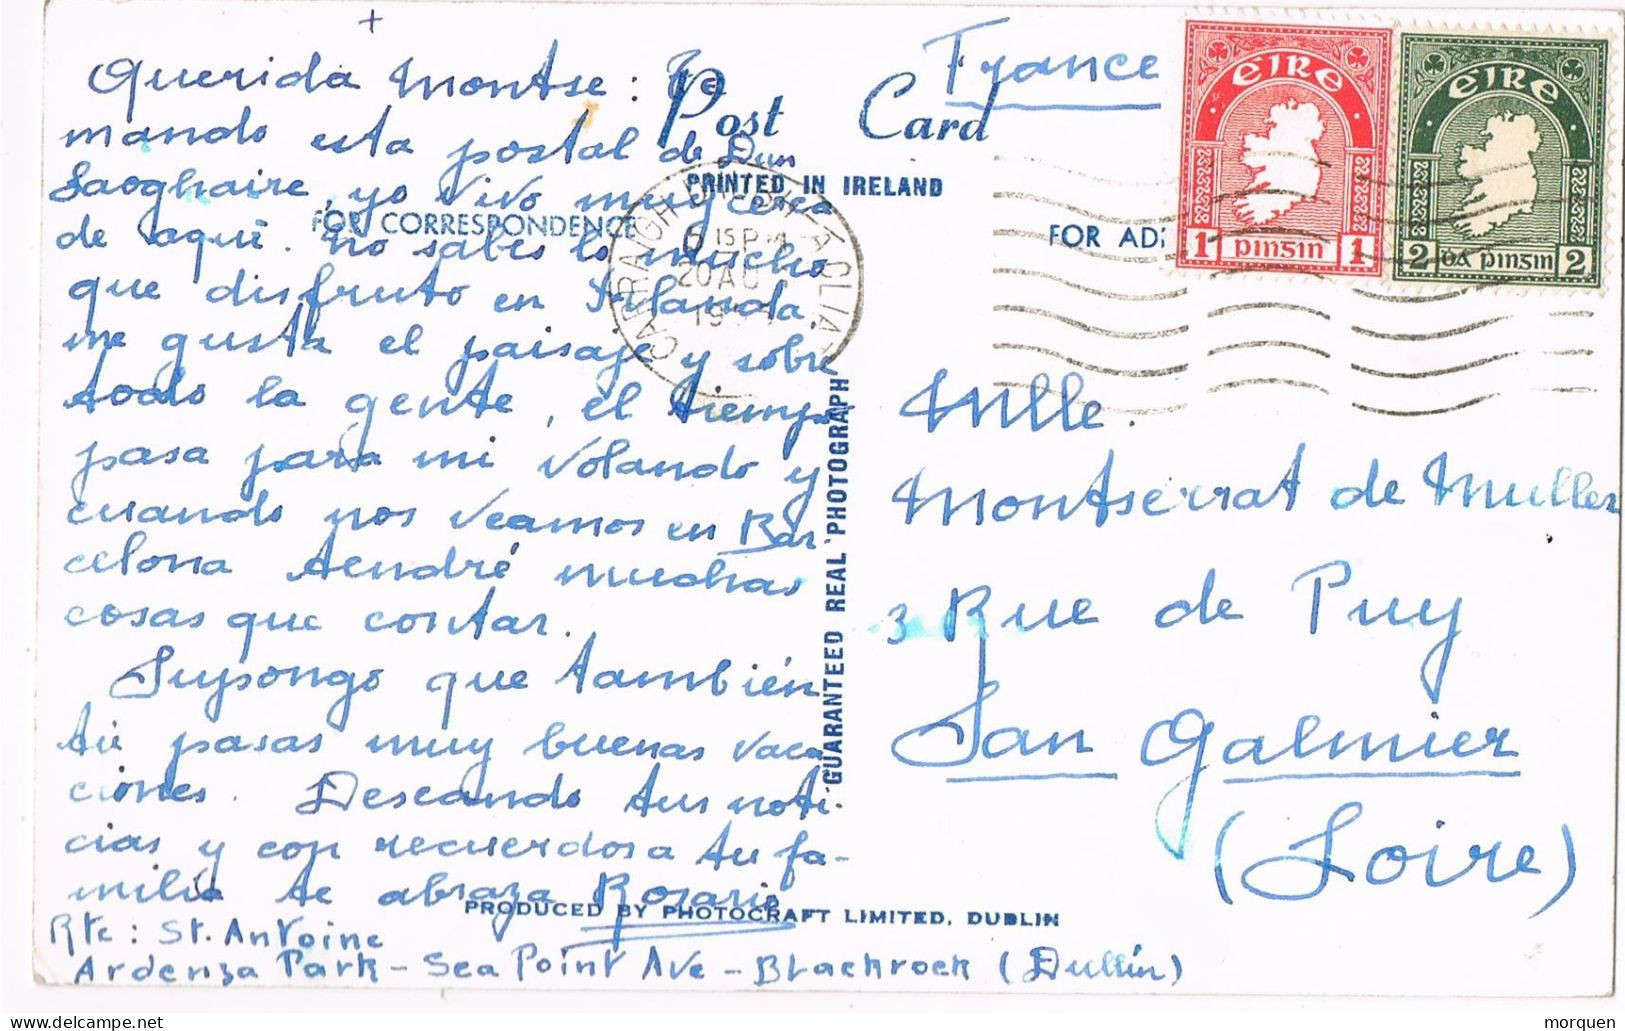 +
Querida Montse: Te
mando esta postal de Dun
Laoghaire, yo vivo muy cerca
de aquí. No sabes lo mucho
que disfruto en Irlanda,
me gusta el paisaje y sobre
todo la gente, el tiempo
pasa para mi volando y
cuando nos veamos en Bar-
celona tendré muchas
cosas que contar.
Supongo que también
tú pasas muy buenas vaca
ciones. Deseando tus noti-
cias y con recuerdos a tu fa-
milia te abraza Rosario
Rte: St. Antoine
Ardenza Park - Sea Point Ave - Blackrock (Dullín)
Post Card
PRINTED IN IRELAND
FOR CORRESPONDENCE
FOR AD
GUARANTEED REAL PHOTOGRAPH
PRODUCED BY PHOTOCRAFT LIMITED, DUBLIN
CARRAIGH
CLIAT
15 PM
20 AU
19
France
EIRE
1 pinsin 1
EIRE
2 DÁ pinsin 2
Mlle.
Montserrat de Muller
3 Rue de Puy
San Galmier
(Loire)
morquen